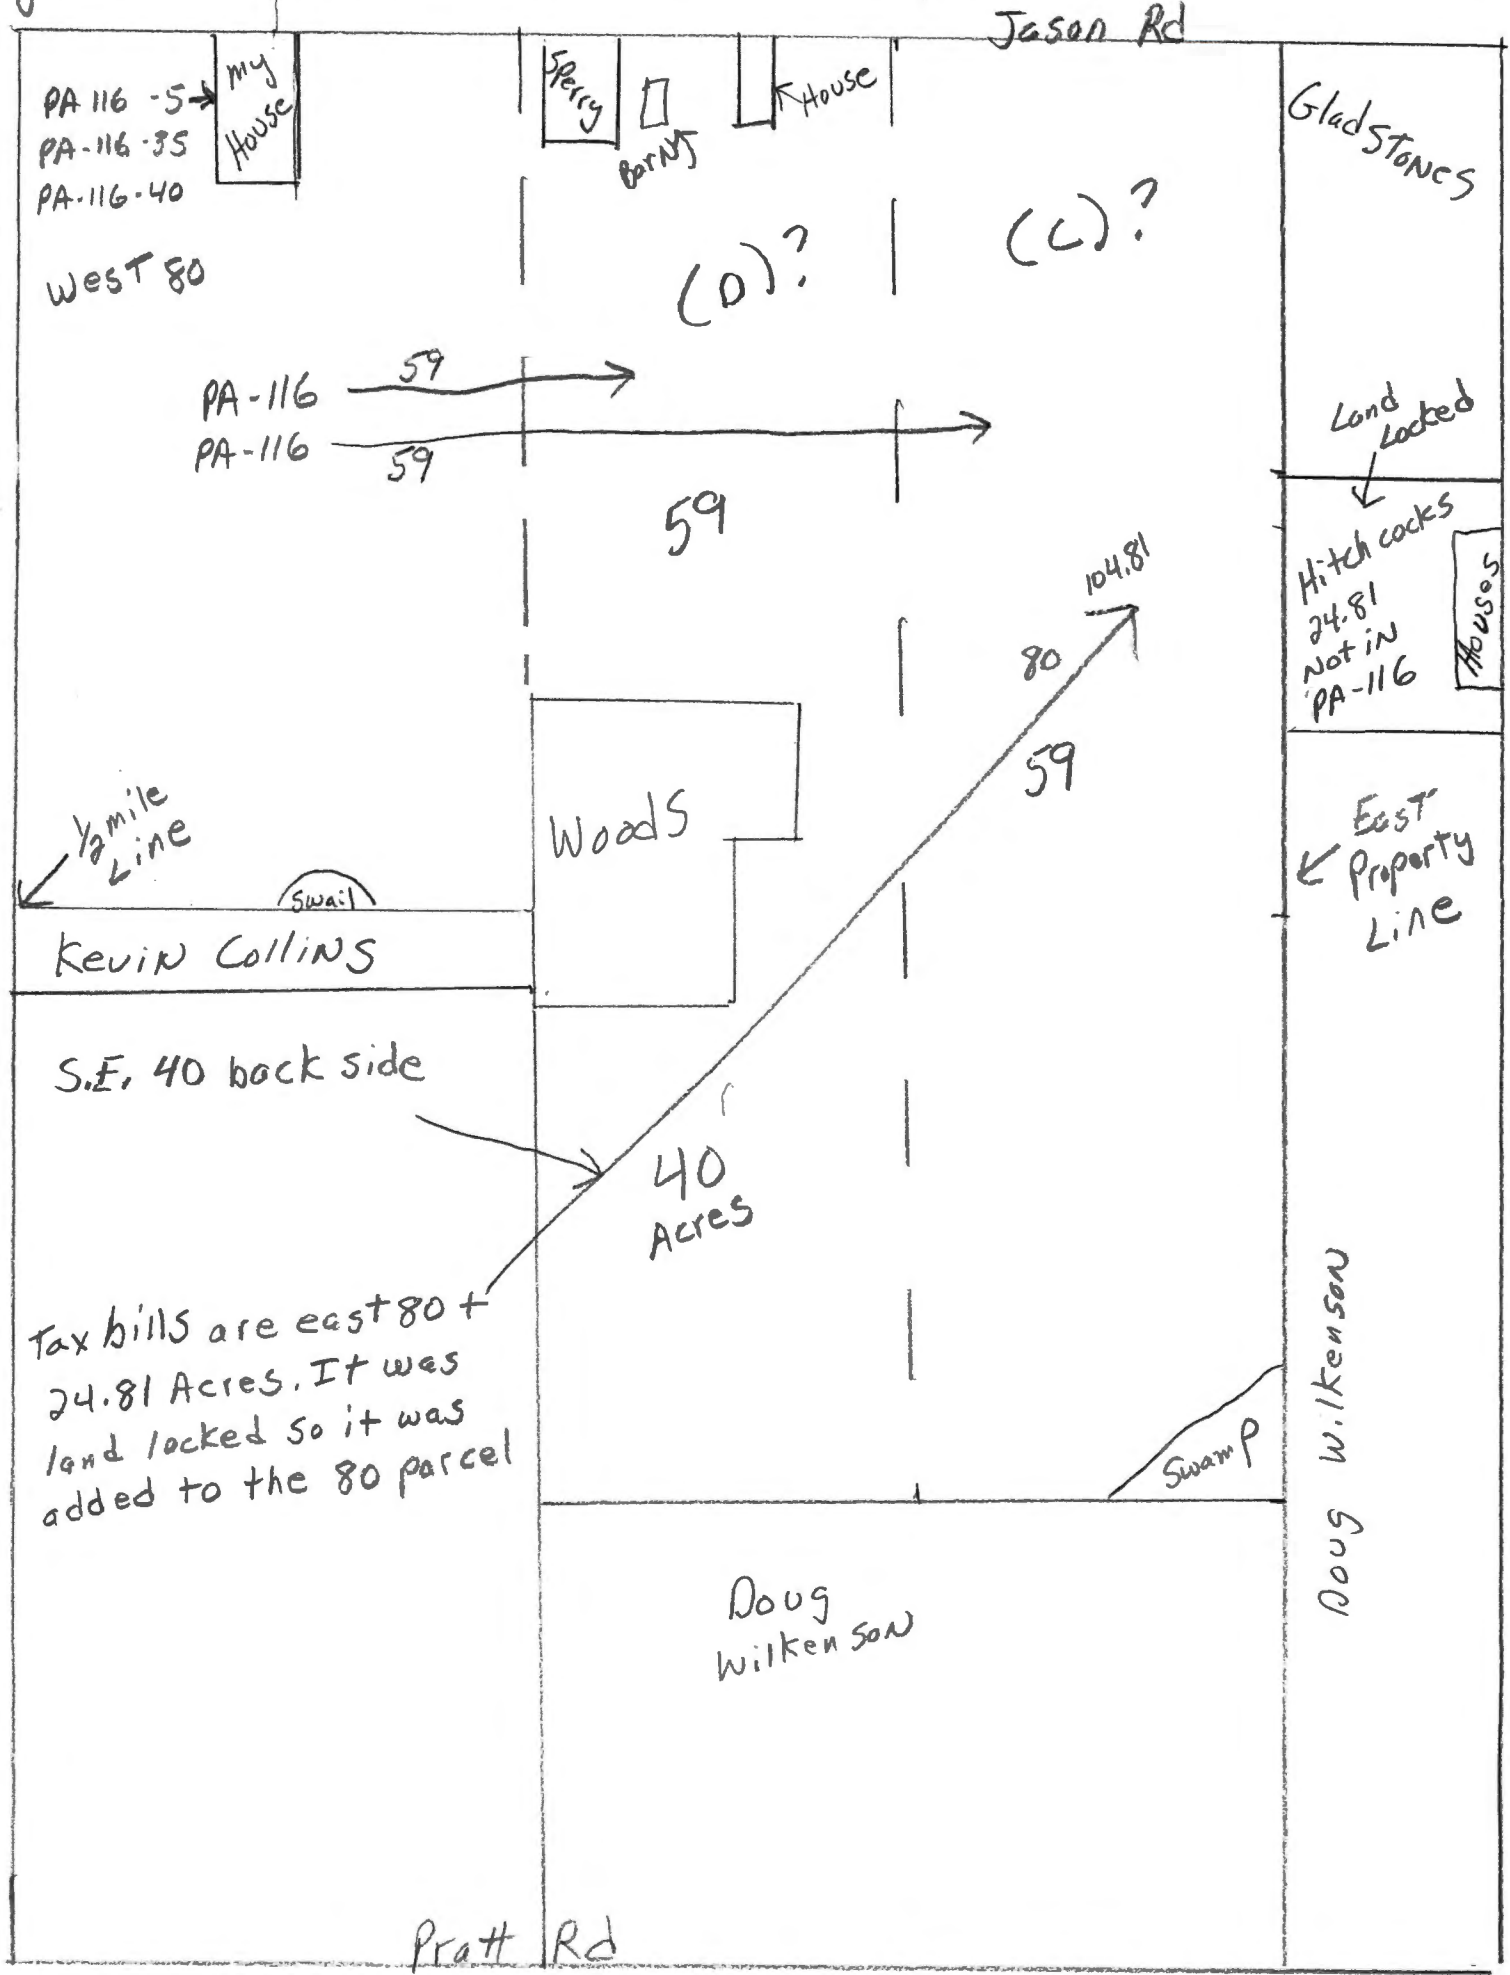 Jason Rd
PA 116 -5
PA-116-35
PA-116-40
My
House
Sperry
Barn
House
Gladstones
West 80
(D)?
(C)?
PA-116 59
PA-116 59
59
Land
Locked
Hitchcocks
24.81
Not in
PA-116
Houses
104.81
80
59
Woods
1/2 mile
Line
Swail
Kevin Collins
East
Property
Line
S.E. 40 back side
40
Acres
Tax bills are east 80 +
24.81 Acres. It was
land locked so it was
added to the 80 parcel
Swamp
Doug Wilkenson
Doug
Wilkenson
Pratt Rd